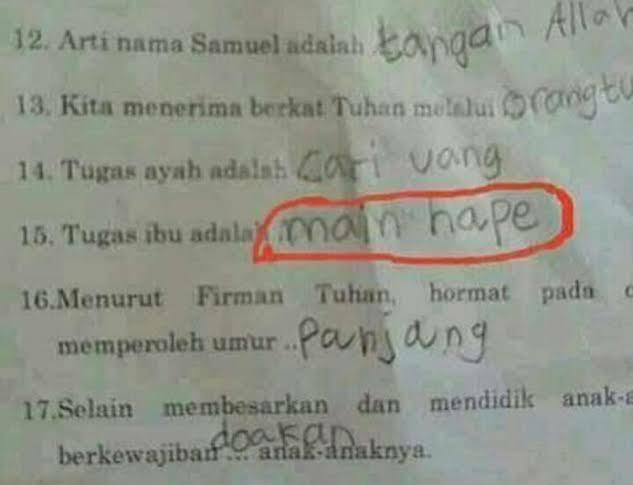 12. Arti nama Samuel adalah tangan Allah
13. Kita menerima berkat Tuhan melalui Orangtu
14. Tugas ayah adalah Cari uang
15. Tugas ibu adala main hape
16.Menurut Firman Tuhan, hormat pada
memperoleh umur ..Panjang
17.Selain membesarkan dan mendidik anak-a
doakan
berkewajiban ... anak-anaknya.